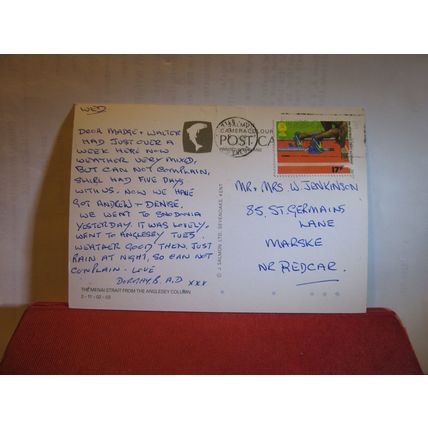 WED.
DEAR MADGE + WALTER
HAD JUST OVER A
WEEK HERE NOW
WEATHER VERY MIXED,
BUT CAN NOT COMPLAIN,
SHIRL HAD FIVE DAYS
WITH US. NOW WE HAVE
GOT ANDREW + DENISE,
WE WENT TO SNODONIA
YESTERDAY. IT WAS LOVELY.
WENT TO ANGLESEY TUES.
WEATHER GOOD THEN. JUST
RAIN AT NIGHT, SO CAN NOT
COMPLAIN. LOVE
DOROTHY.B. A.D XXX
THE MENAI STRAIT FROM THE ANGLESEY COLUMN
2-11-02-03
© J. SALMON LTD., SEVENOAKS, KENT
CAMERACOLOUR
POST CA
17P
MR + MRS W. JENKINSON
85, ST. GERMAINS
LANE
MARSKE
NR REDCAR.